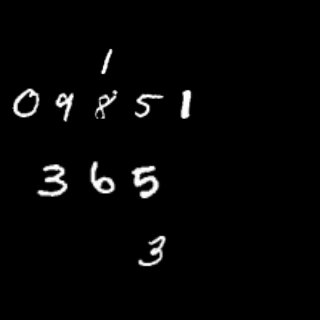 1
09851
365
3